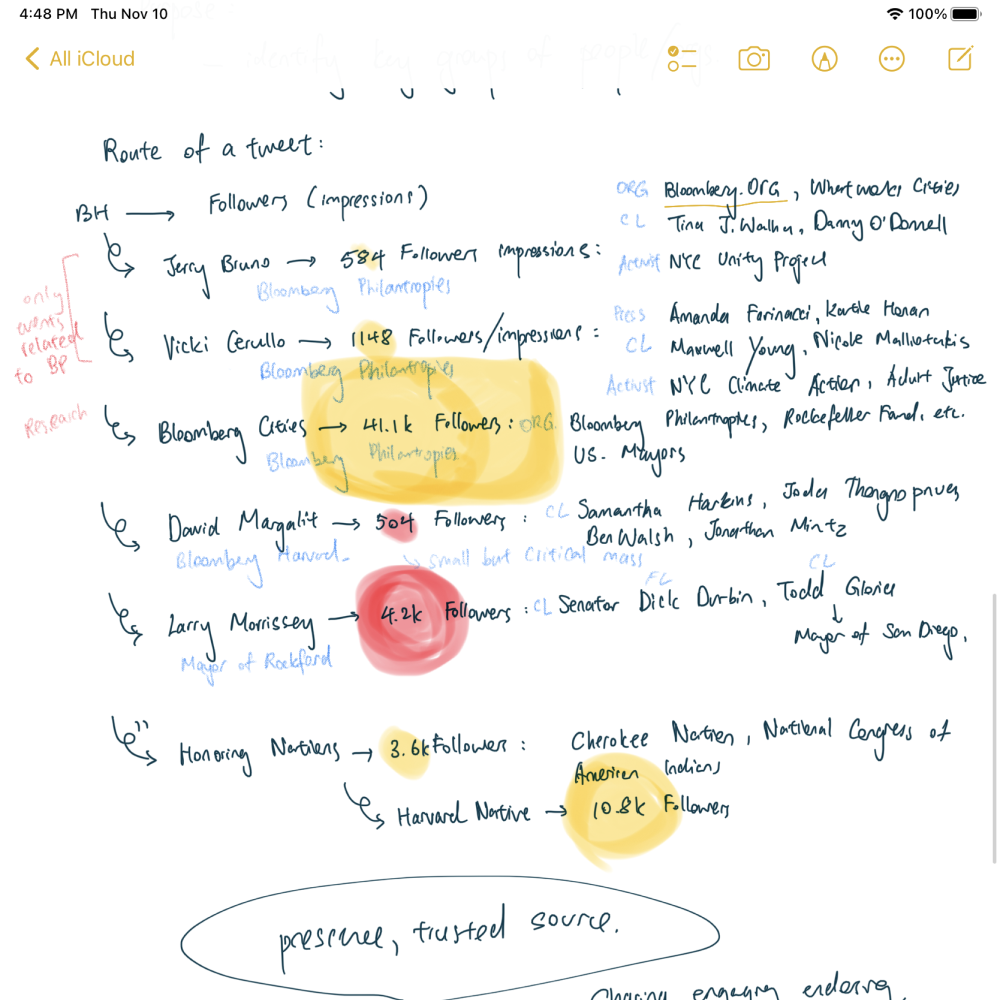 4:48 PM Thu Nov 10
100%
All iCloud
identify key groups of people
Route of a tweet:
BH → Followers (impressions)
ORG Bloomberg.ORG, What works Cities
CL Tina J. Walha, Danny O'Donnell
Jerry Bruno → 584 Followers impressions:
Activist NYC Unity Project
Bloomberg Philantropies
only events related to BP
Press Amanda Farinacci, Katie Honan
Vicki Cerullo → 1148 Followers/impressions:
CL Maxwell Young, Nicole Malliotakis
Bloomberg Philantropies
Activist NYC Climate Action, Adult Justice
Research
Bloomberg Cities → 41.1k Followers: ORG. Bloomberg Philantropies, Rockefeller Fand, etc.
Bloomberg Philantropies
US. Mayors
David Margalit → 504 Followers: CL Samantha Harkins, Jodee
Ben Walsh, Jonathan Mintz
Bloomberg Harvard
small but critical mass
FL
CL
Larry Morrissey → 4.2k Followers: CL Senator Dick Durbin, Todd Gloria
Mayor of San Diego,
Mayor of Rockford
Honoring Nations → 3.6k Follower: Cherokee Nation, National Congress of
American Indians
Harvard Native → 10.8k Followers
presence, trusted source.
engaging